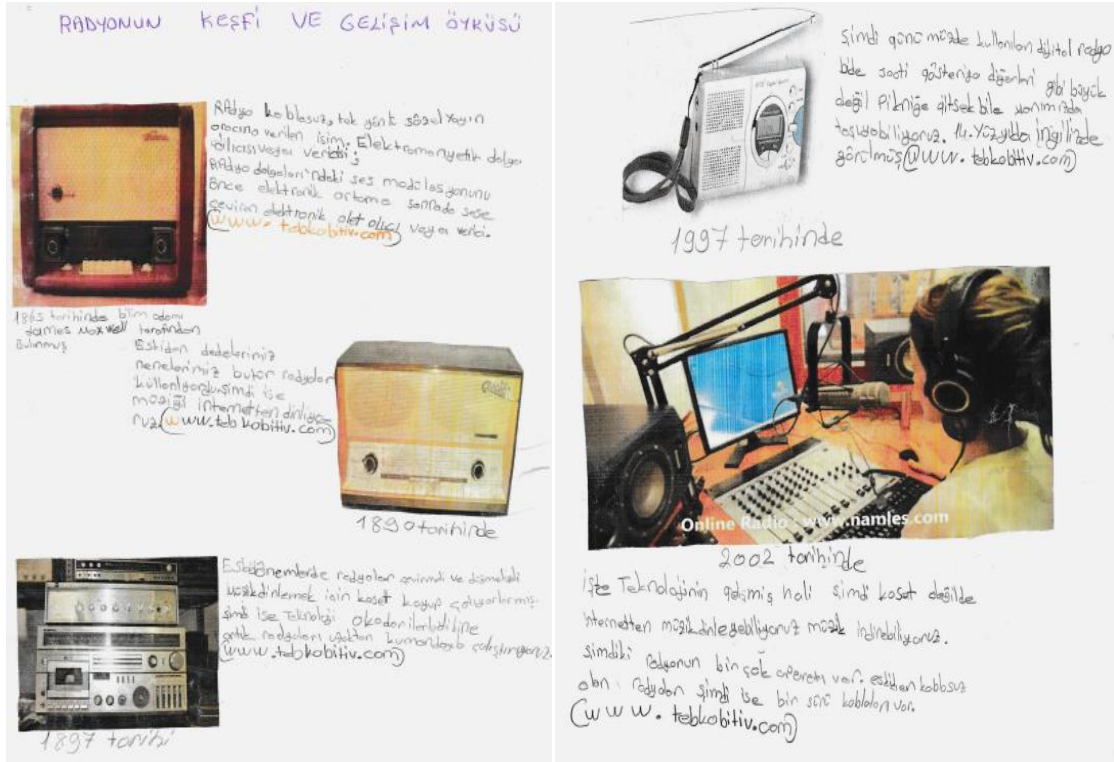 RADYONUN KEŞFİ VE GELİŞİM ÖYKÜSÜ
RAdyo kablosuz, tek yönlü sözel Yayın
aracına verilen isim. Elektromanyetik dalga
alıcısı veya vericisi;
RAdyo dalgaları'ndaki ses modülasyonunu
önce elektronik ortama sonrada sese
çeviren elektronik alet alıcı veya verici.
(www.tebkobitiv.com)
1865 tarihinde bilim adamı
James Maxwell tarafından
Bulunmuş
Eskiden dedelerimiz
nenelerimiz bu tür radyolar
kullanılıyordu şimdi ise
müziği internetten dinliyo-
ruz (www.tebkobitiv.com)
1890 tarihinde
Eski dönemlerde radyolar çevirmeli ve düşmeliydi
müzik dinlemek için kaset koyup çalıyorlarmış
şimdi ise Teknoloji okadar ilerledi
artık radyoları uzaktan kumandayla çalıştırıyoruz
(www.tebkobitiv.com)
1897 tarihi
Şimdi günümüzde kullanılan dijital radyo
bide saati gösteriyo diğerleri gibi büyük
değil Pikniğe gitsek bile yanımızda
taşıyabiliyoruz. 14. Yüzyılda ingilizde
görülmüş (www.tebkobitiv.com)
1997 tarihinde
Online Radio : www.namles.com
2002 tarihinde
İşte Teknolojinin gelişmiş hali şimdi kaset değilde
internetten müzik dinleyebiliyoruz müzik indirebiliyoruz.
Şimdiki Radyonun bir çok operatı var. eskiden kablosuz
olan radyolar şimdi ise bir sürü kabloları var.
(www.tebkobitiv.com)